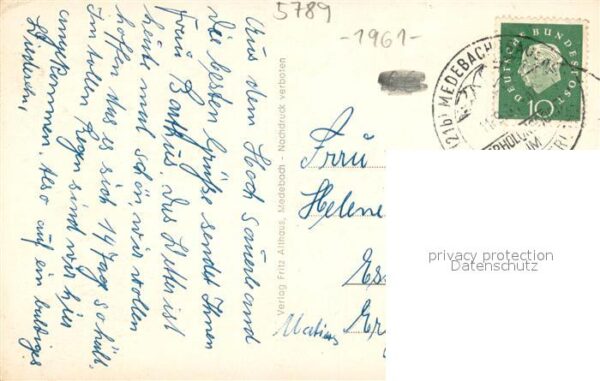 5789
-1961-
Aus dem Hochsauerland
die besten Grüße sendet Ihnen
Frau Barthus. Das Wetter ist
heute mal schön, wir wollen
hoffen das es sich 14 Tag so hält.
Im tollen Regen sind wir hier
angekommen. Also auf ein baldiges
Wiedersehn
Verlag Fritz Althaus, Medebach - Nachdruck verboten
DEUTSCHE BUNDESPOST
10
(21b) MEDEBACH
Frau
Helene
privacy protection
Datenschutz